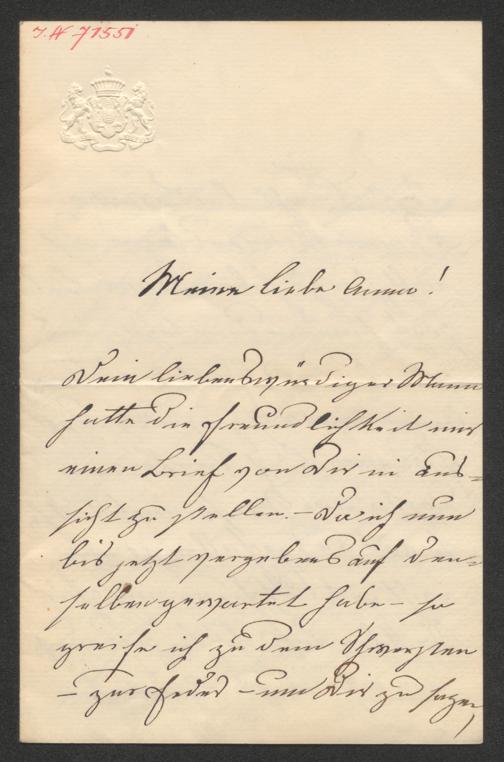 I.N 71551
Meine liebe Anna!
Dein liebenswürdiger Mann
hatte die Freundlichkeit mir
einen Brief von Dir in Aus=
sicht zu stellen. – Da ich nun
bis jetzt vergebens auf den=
selben gewartet habe – so
greife ich zu dem
– zur Feder – um Dir zu sagen,